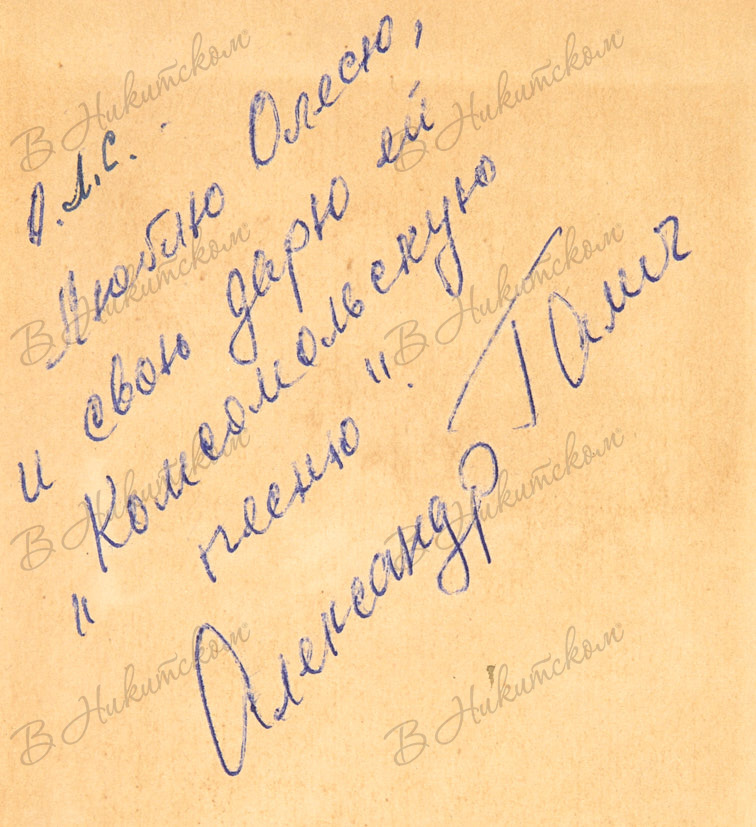 О.Л.С.
Люблю Олесю,
и свою дарю ей
"Комсомольскую
песню".
Александр Галич
В Никитском
В Никитском
В Никитском
В Никитском
В Никитском
В Никитском
В Никитском
В Никитском